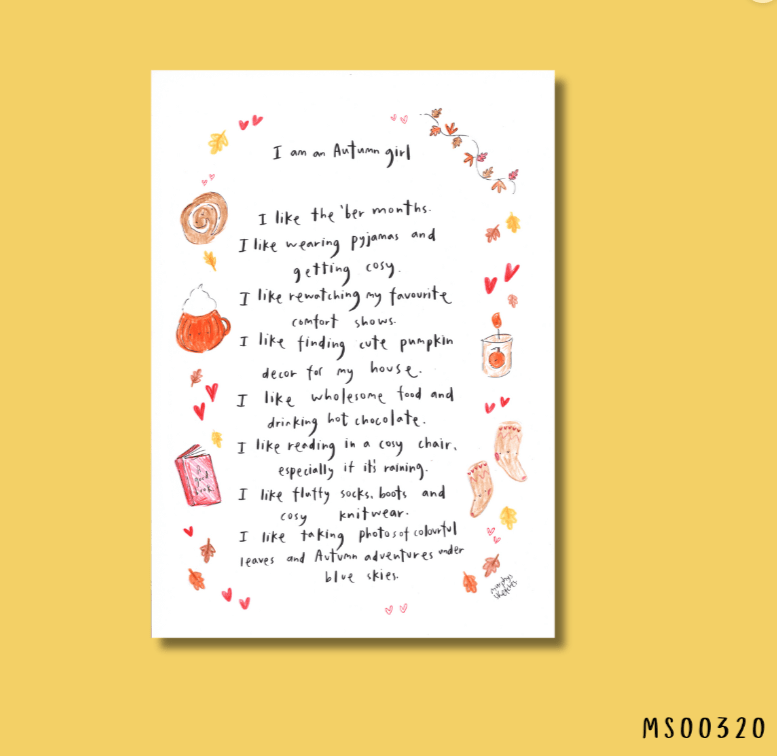 I am an Autumn girl
I like the 'ber months.
I like wearing pyjamas and
getting cosy.
I like rewatching my favourite
comfort shows.
I like finding cute pumpkin
decor for my house.
I like wholesome food and
drinking hot chocolate.
I like reading in a cosy chair,
especially if it's raining.
I like fluffy socks, boots and
cosy knitwear.
I like taking photos of colourful
leaves and Autumn adventures under
blue skies.
a good book
MS00320